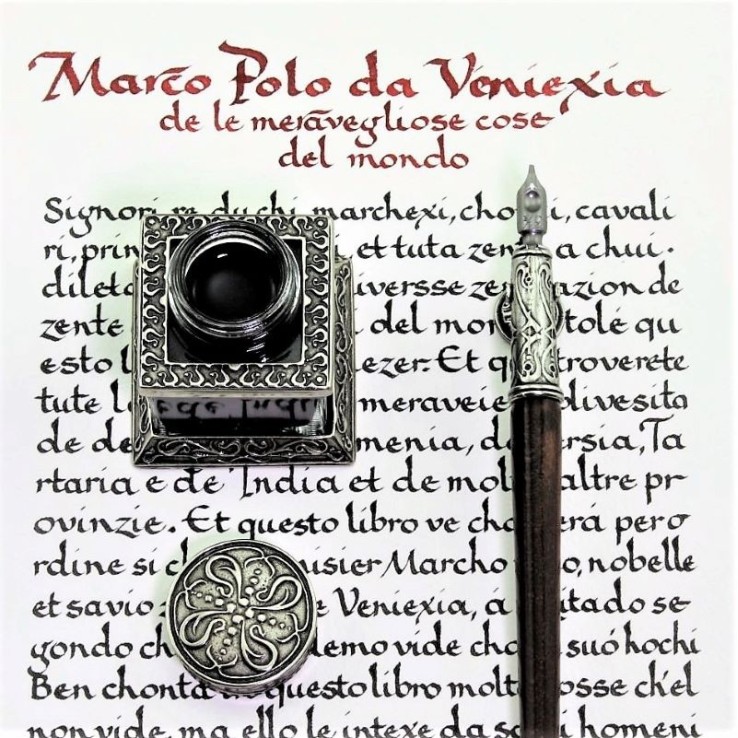 Marco Polo da Veniexia
de le meravegliose cose
del mondo
Signori, re, duchi, marchexi, cho i, cavali
ri, prin et tuta zen a chui
dileta iversse zen azion de
zente del mon tole qu
esto l lezer. Et q troverete
tute le meraveie divesita
de de menia, de ersia, Ta
rtaria e de India et de mol altre pr
ovinzie. Et questo libro ve cho erá pero
rdine sì ch misier Marcho lo, nobelle
et savio Veniexia, á tado se
gondo ch demo vide cho suó hochi
Ben chonta questo libro molt osse ch'el
non vide, ma ello le intexe da so i homeni